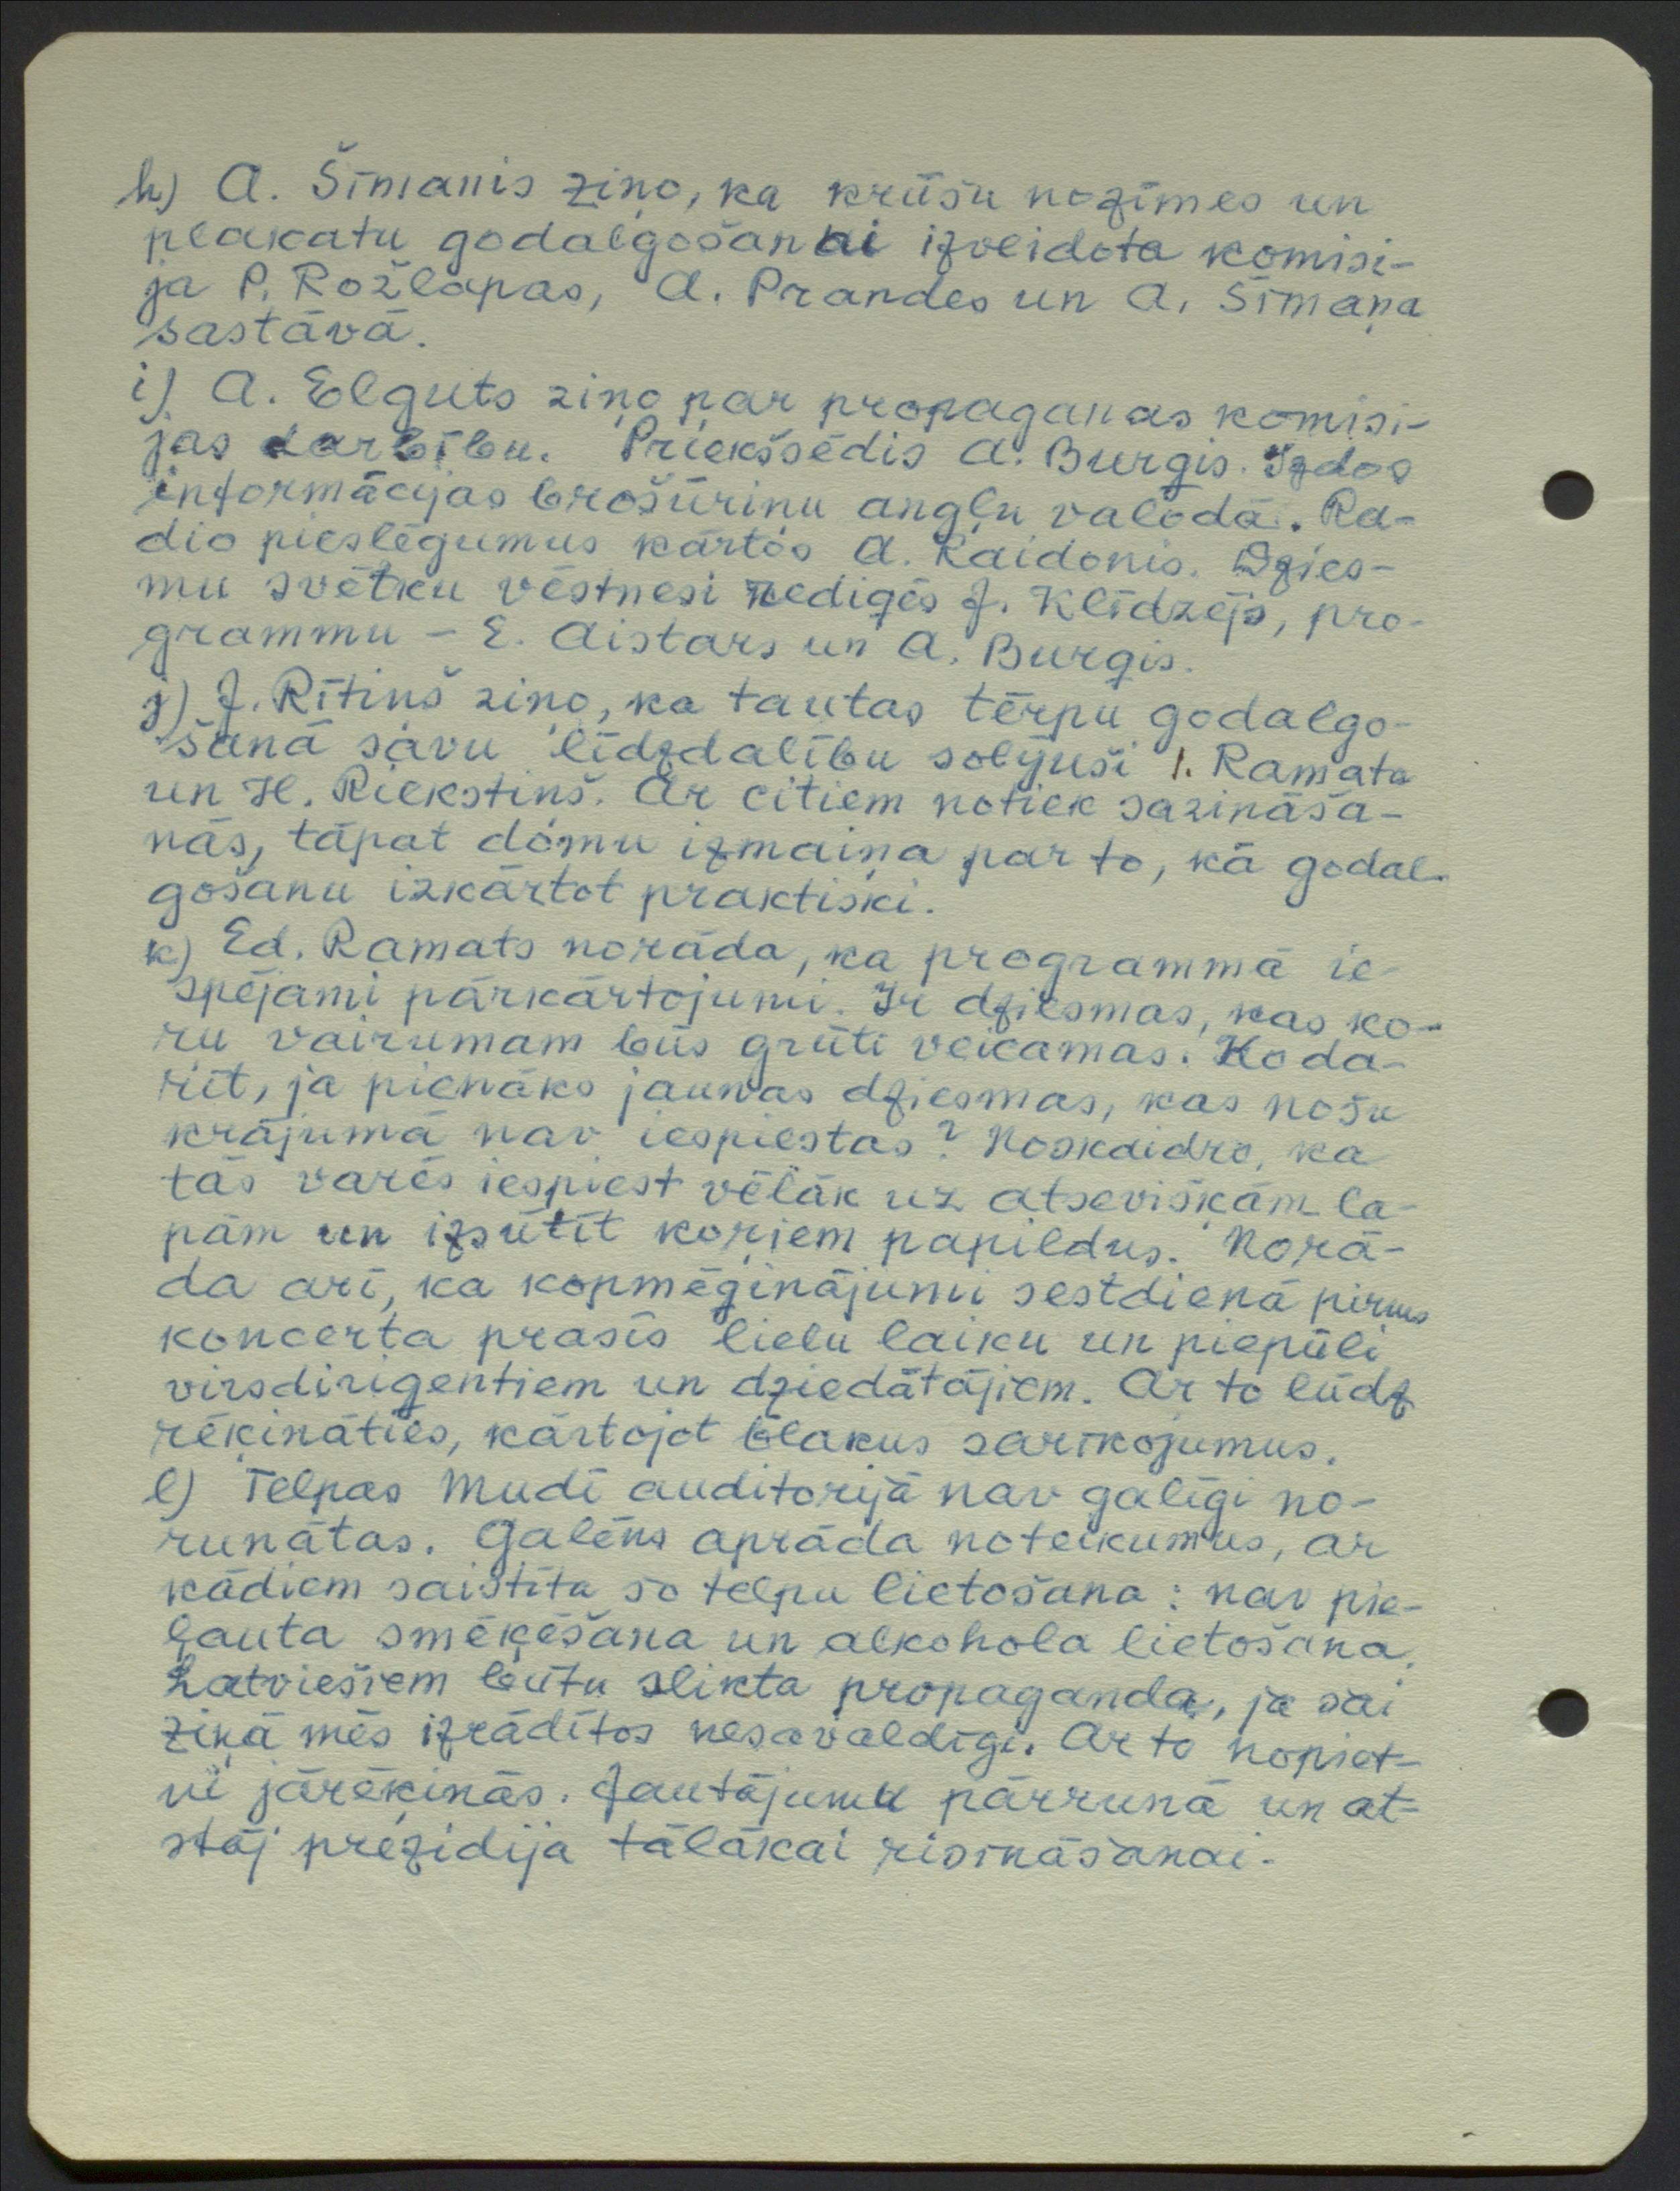 h) A. Šīmanis ziņo, ka krūšu nozīmes un
plakatu godalgošanai izveidota komisi-
ja P. Rožlapas, A. Prandes un A. Sīmaņa
sastāvā.
i) A. Elguts ziņo par propaganas komisi-
jas darbību. Priekšsēdis A. Burgis. Izdos
informācijas brošūriņu angļu valodā. Ra-
dio pieslēgumus kārtos A. Raidonis. Dzies-
mu svētku vēstnesi rediģēs J. Klīdzējs, pro-
grammu – E. Aistars un A. Burgis.
j) J. Rītiņš ziņo, ka tautas tērpu godalgo-
šanā savu līdzdalību solījuši I. Ramata
un H. Riekstiņš. Ar citiem notiek sazināša-
nās, tāpat domu izmaiņa par to, kā godal-
gošanu izkārtot praktiski.
k) Ed. Ramats norāda, ka programmā ie-
spējami pārkārtojumi. Ir dziesmas, kas ko-
ru vairumam būs grūti veicamas. Ko da-
rīt, ja pienāks jaunas dziesmas, kas nošu
krājumā nav iespiestas? Noskaidro, ka
tās varēs iespiest vēlāk uz atsevišķām la-
pām un izsūtīt koŗiem papildus. Norā-
da arī, ka kopmēģinājumi sestdienā pirms
koncerta prasīs lielu laiku un piepūli
virsdiriģentiem un dziedātājiem. Ar to lūdz
rēķināties, kārtojot blakus sarīkojumus.
l) Telpas Mudī auditorijā nav galīgi no-
runātas. Galēns aprāda noteikumus, ar
kādiem saistīta šo telpu lietošana: nav pie-
ļauta smēķēšana un alkohola lietošana.
Latviešiem būtu slikta propaganda, ja šai
ziņā mēs izrādītos nesavaldīgi. Ar to nopiet-
ni jārēķinās. Jautājumu pārrunā un at-
stāj prezidija tālākai risināšanai.